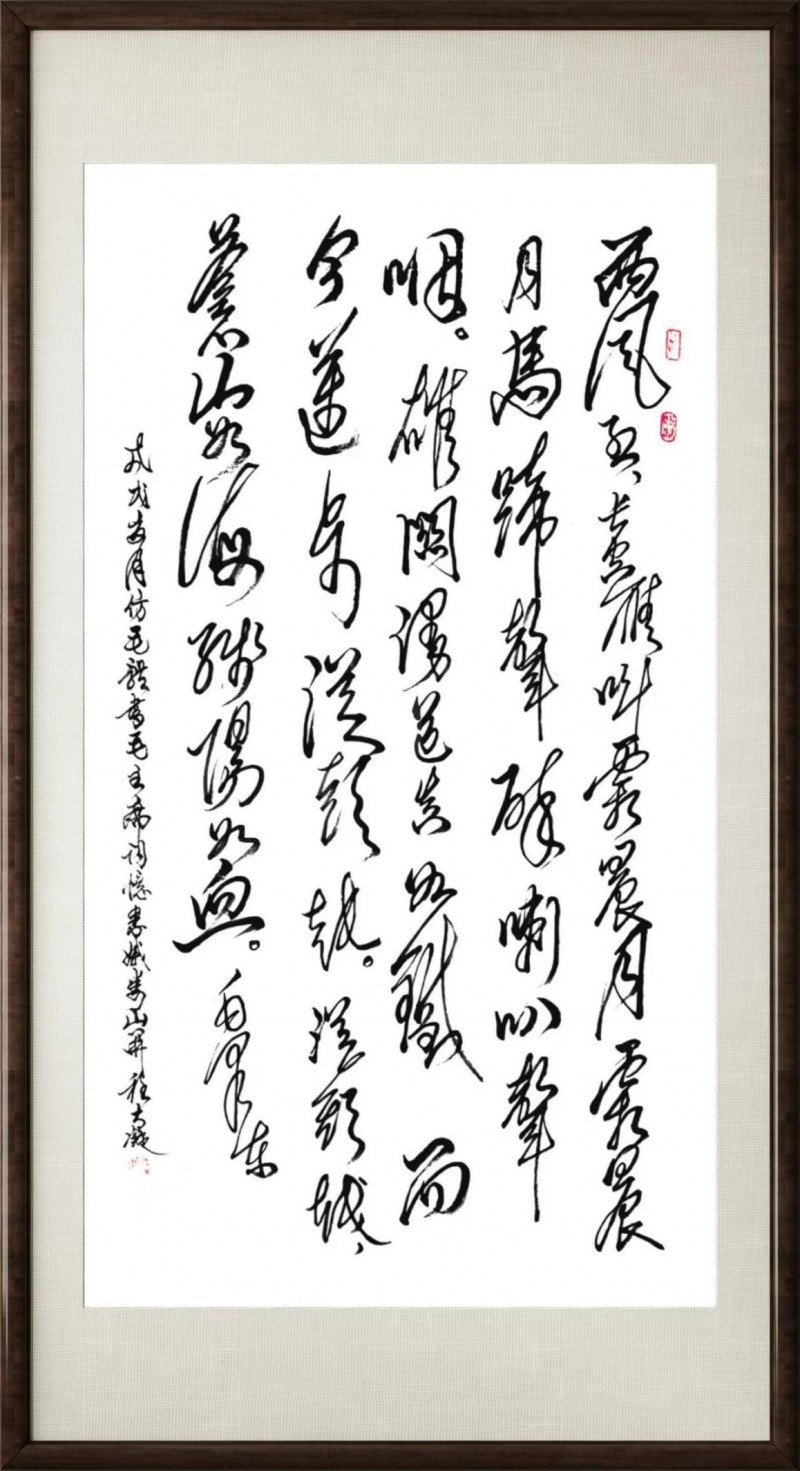 西风烈、长空雁叫霜晨月霜晨
月馬蹄聲碎喇叭聲
咽。雄關漫道真如鐵而
今邁步從頭越。從頭越、
蒼山如海殘陽如血。毛澤東
戊戌月仿毛體書毛主席词憶秦娥娄山関程大凝